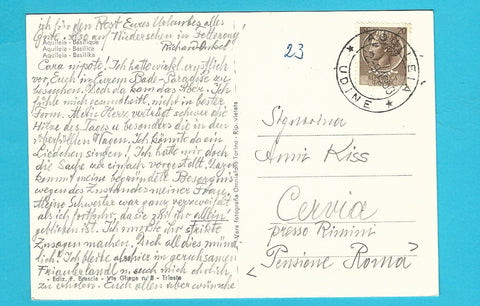 ich für den Rest Eures Urlaubes alles
Gute. Also auf Wiedersehen in
Aquileia - Basilique
Aquileia - Basilica
Aquileia - Basilika
Cara nipote! Ich hatte wirkl. ernstlich
vor, Euch in Eurem Bade-Paradise zu
besuchen. Doch da kam das Aber. Ich
fühle mich gesundheitl. nicht in bester
Form. Mein Herz verträgt schwer die
Hitze des Tages u. besonders die in den
überhitzten Wagen. Ich könnte da ein
Liedchen singen! Ich hatte mir doch
die Sache so einfach vorgestellt. Dazu
kommt meine begründete Besorgnis
wegen des Zustandes meiner Frau.
Meine Schwester war ganz verzweifelt
als ich fortfuhr, da sie mit ihr allein
geblieben ist. Ich mußte ihr strikte
Zusagen machen. Doch all dies münd-
lich! Ich bleibe also hier im geruhsamen
Friaulerland u. suche mich ehrlich
zu erholen. Euch allen wünsche
Ediz. F. Brescia - Via Ghega n. 8 - Trieste
Vera fotografia
23
AQUILEIA
UDINE
Signorina
Kiss
Cervia
presso Rimini
"Pensione Roma"